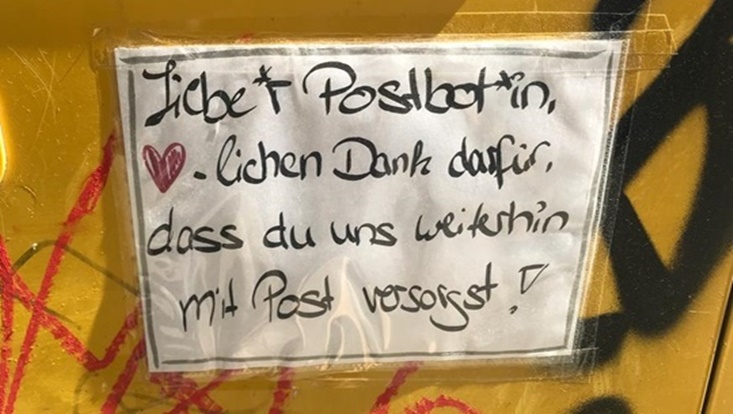 Liebe*r Postbot*in,
♥-lichen Dank dafür,
dass du uns weiterhin
mit Post versorgst!